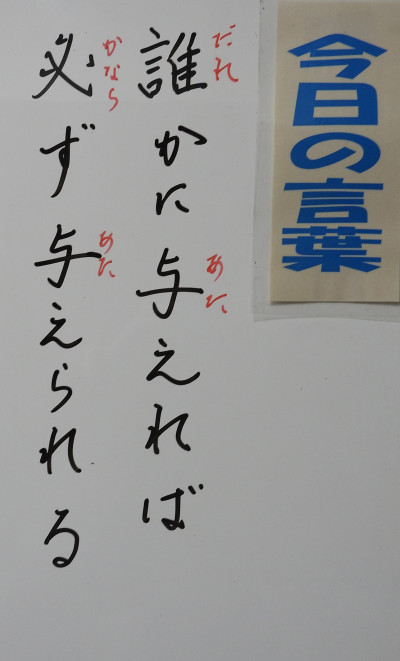 今日の言葉
だれ
誰かに与えれば
あた
かなら
必ず与えられる
あた